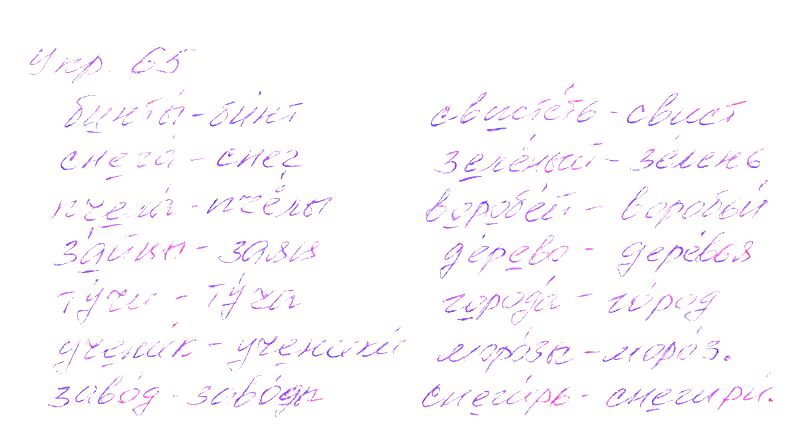 Упр. 65
бинты́ - бинт
снега́ - снег
пчела́ - пчёлы
за́йцы - заяц
ту́чи - ту́ча
учени́к - ученики́
заво́д - заво́ды
свисте́ть - свист
зелёный - зе́лень
воробе́й - воробьи́
де́рево - дере́вья
города́ - го́род
моро́зы - моро́з.
снеги́рь - снегири́.